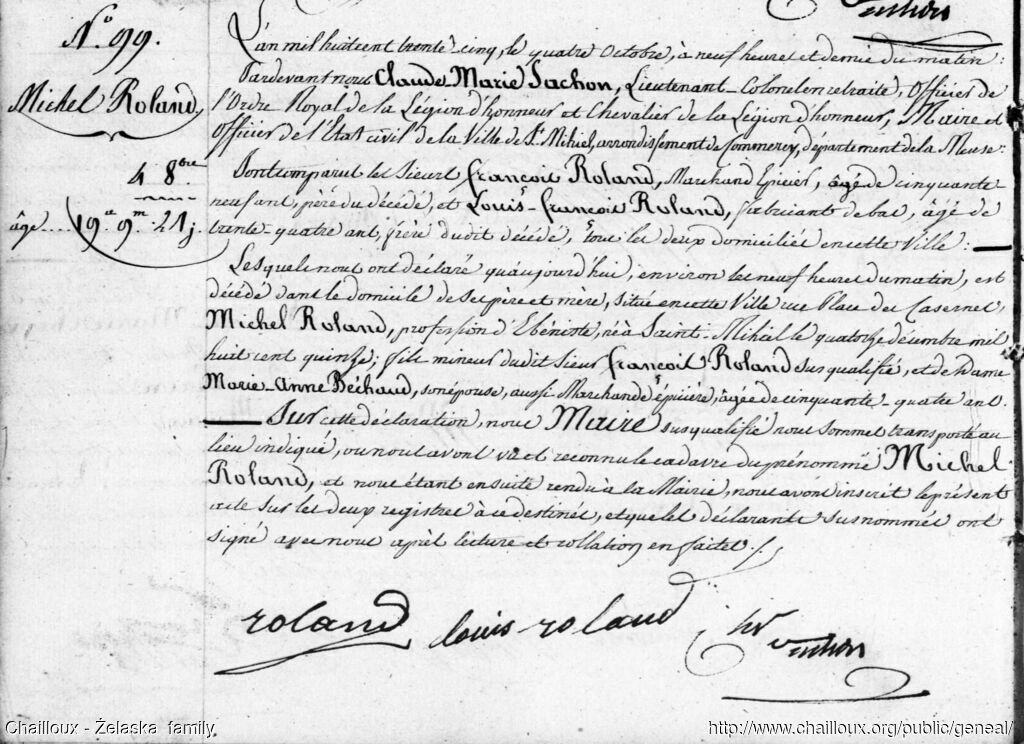 N.º 99.
Michel Roland,
4 8bre
âge.... 19a 9m 21j.
L'an mil huit cent trente cinq, le quatre Octobre, à neuf heures et demie du matin:
Pardevant nous Claude Marie Vachon, Lieutenant-Colonel en retraite, Officier de
l'Ordre Royal de la Légion d'honneur et Chevalier de la Légion d'honneur, Maire et
Officier de l'État civil de la Ville de St. Mihiel, arrondissement de Commercy, département de la Meuse:
Sont comparut les Sieurs françois Roland, Marchand Epicier, âgé de cinquante
neuf ans, père du décédé, et Louis-françois Roland, fabricant de bas, âgé de
trente-quatre ans, frère dudit décédé, tous les deux domiciliés en cette Ville:
Lesquels nous ont déclaré qu'aujourd'hui, environ les neuf heures du matin, est
décédé dans le domicile de ses père et mère, situé en cette Ville rue Place des Casernes,
Michel Roland, profession d'Ebéniste, né à Saint-Mihiel le quatorze décembre mil
huit cent quinze; fils mineur dudit Sieur françois Roland susqualifié, et de Dame
Marie-Anne Béchaud, son épouse, aussi Marchande épicière, âgée de cinquante-quatre ans.
Sur cette déclaration, nous Maire susqualifié nous sommes transporté au
lieu indiqué, ou nous avons vu et reconnu le cadavre du prénommé Michel
Roland, et nous étant ensuite rendu à la Mairie, nous avons inscrit le présent
acte sur les deux registres à ce destinés, et que les déclarants susnommés ont
signé avec nous après lecture et collation en faites./.
roland louis roland
Vachon
Chailloux - Żelaska family
http://www.chailloux.org/public/geneal/